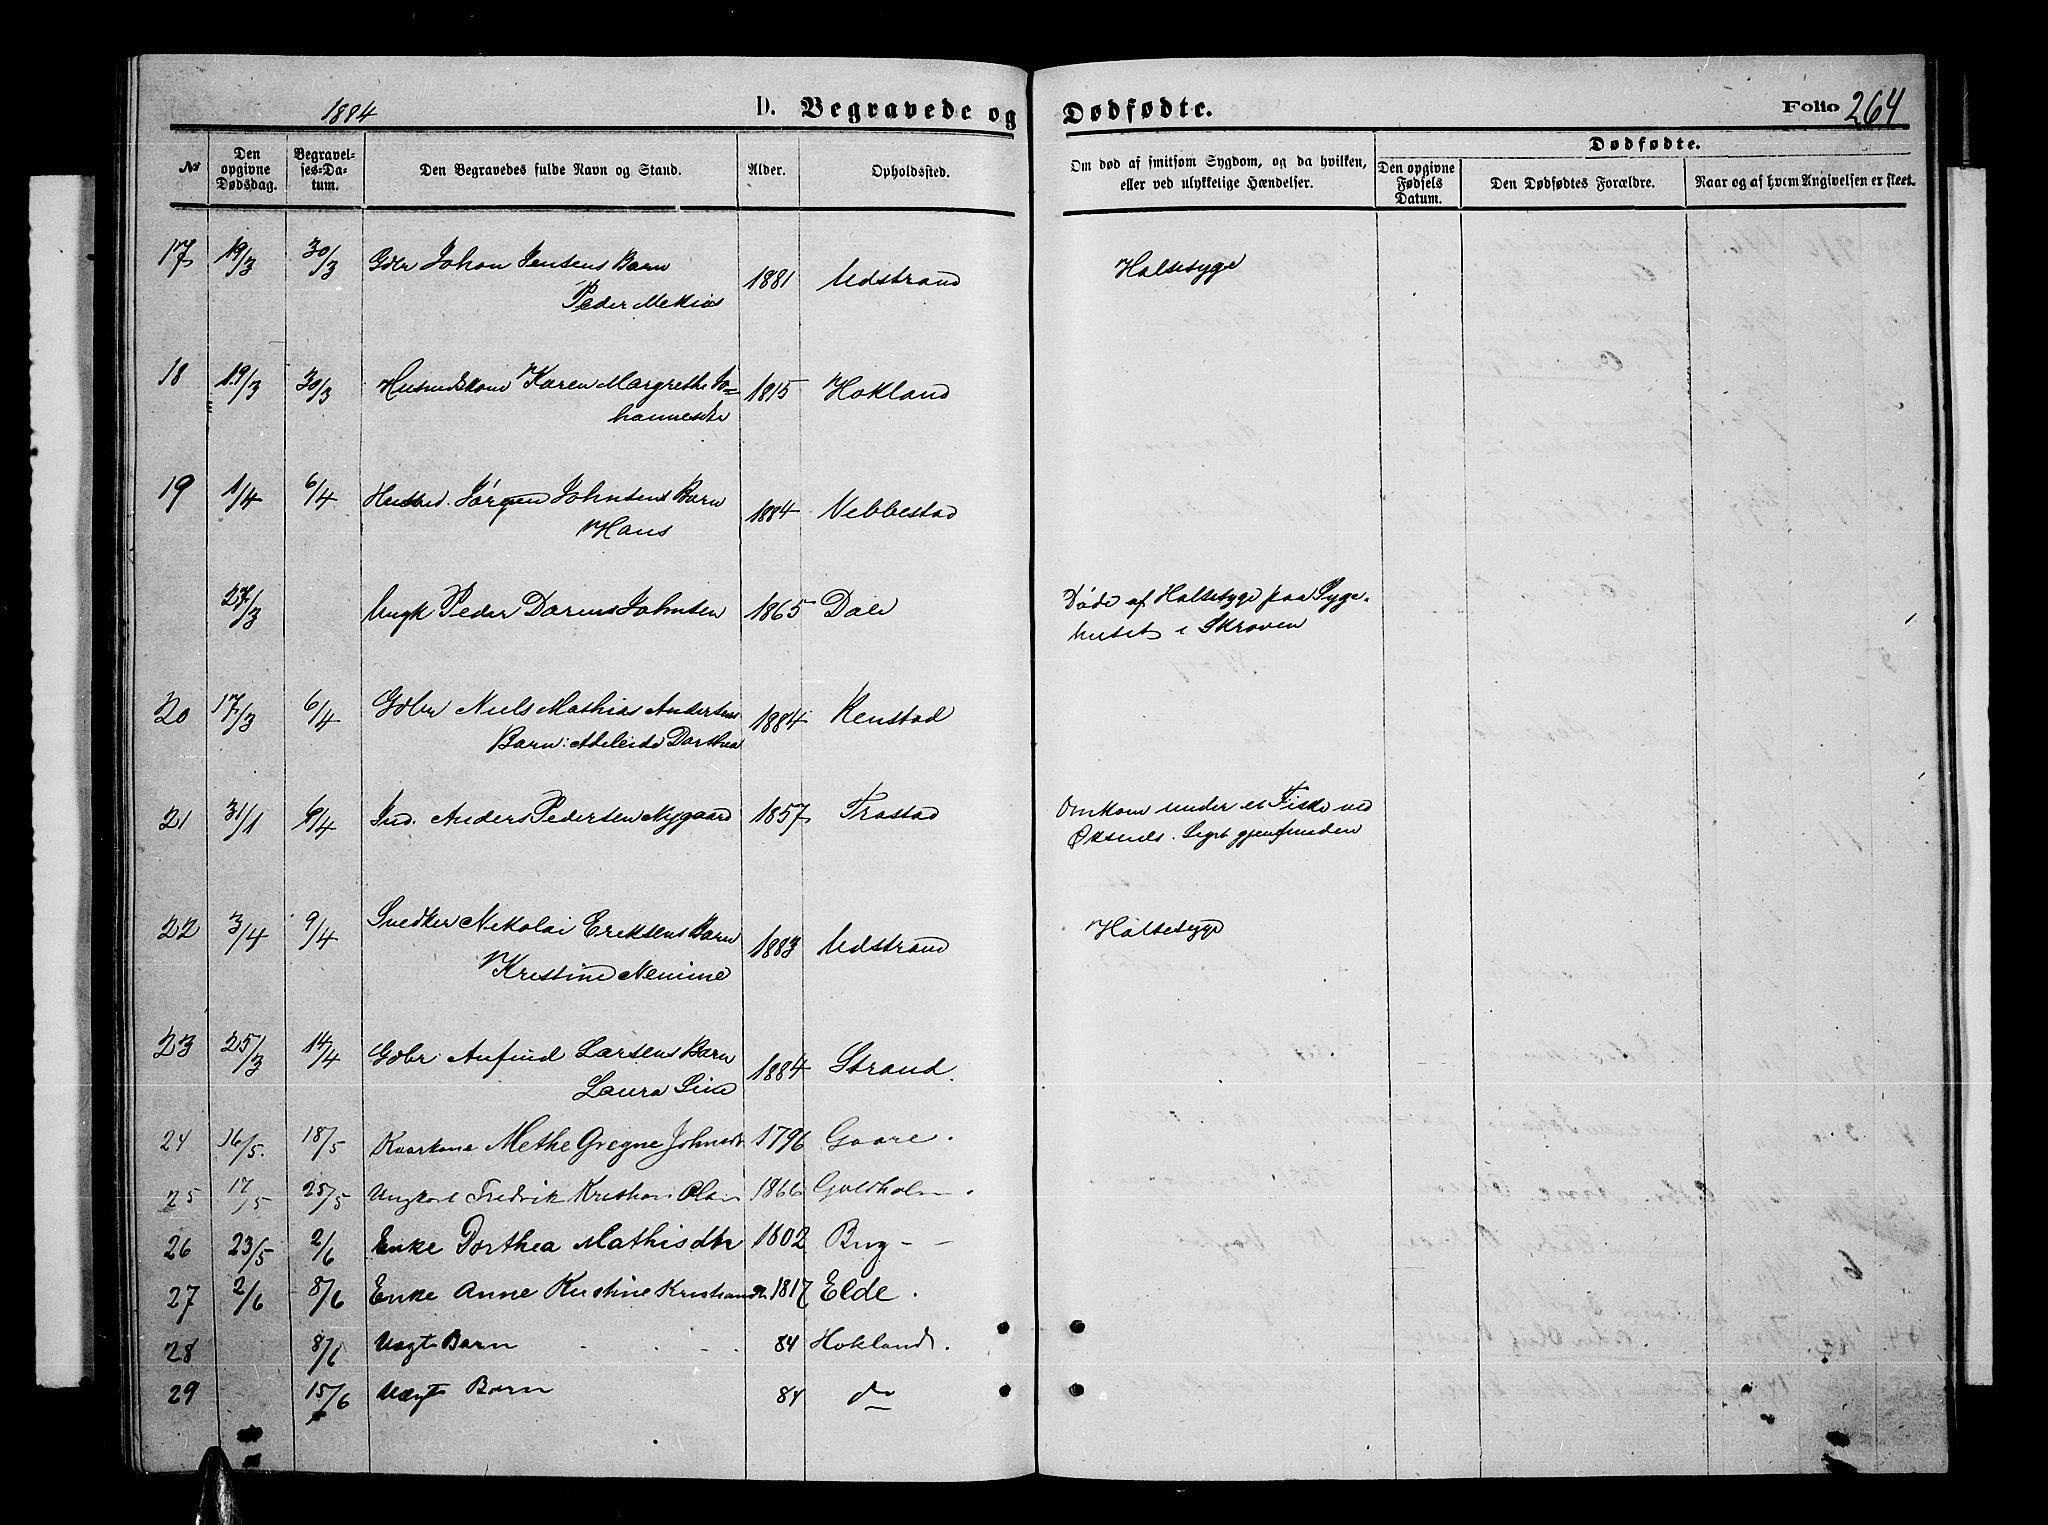 1884 D. Begravede og Dødfødte. Folio 264
№ Den opgivne Dødsdag. Begravelses-Datum. Den Begravedes fulde Navn og Stand. Alder. Opholdssted. Om død af smitsom Sygdom, og da hvilken, eller ved ulykkelige Hændelser. Dødfødte. Den opgivne Fødsels Datum. Den Dødfødtes Forældre. Naar og af hvem Angivelsen er skeet.
17 19/3 30/3 Gdbr Johan Jensens Barn 1881 Udstrand Halsesyge
Peder Mekias
18 19/3 30/3 Husmdskone Karen Margrethe Jo= 1815 Hokland
hannesdr
19 1/4 6/4 Husmd. Jørgen Johnsens Barn 1884 Vebbestad
Hans
27/3 Ungk Peder Dorius Johnsen 1865 Dale Døde af Halsesyge paa Syge-
huset i Skroven
20 17/3 6/4 Gdbr Niels Mathias Andersens 1884 Renstad
Barn: Adeleide Dorthea
21 31/1 6/4 Ind. Anders Pedersen Nygaard 1857 Trastad Omkom under et Fiske ved
Øksnes. Liget gjenfunden
22 3/4 9/4 Snedker Nikolai Eriksens Barn 1883 Udstrand Halsesyge
Kristine Nemine
23 25/3 14/4 Gdbr. Anfind Larsens Barn 1884 Strand.
Laura Sine
24 16/5. 18/5 Kaarkone Methe Gregne Johnsdr 1796 Gaare.
25 17/5 25/5 Ungkarl Fredrik Kristian Olsen 1866 Guldholm.
26 23/5 2/6 Enke Dorthea Mathisdtr 1802 Byg - -
27 2/6 8/6 Enke Anne Kirstine Kristiansdr. 1817 Elde.
28 8/6 Uægte Barn 84 Hokland.
29 15/6 Uægte Barn 84 do